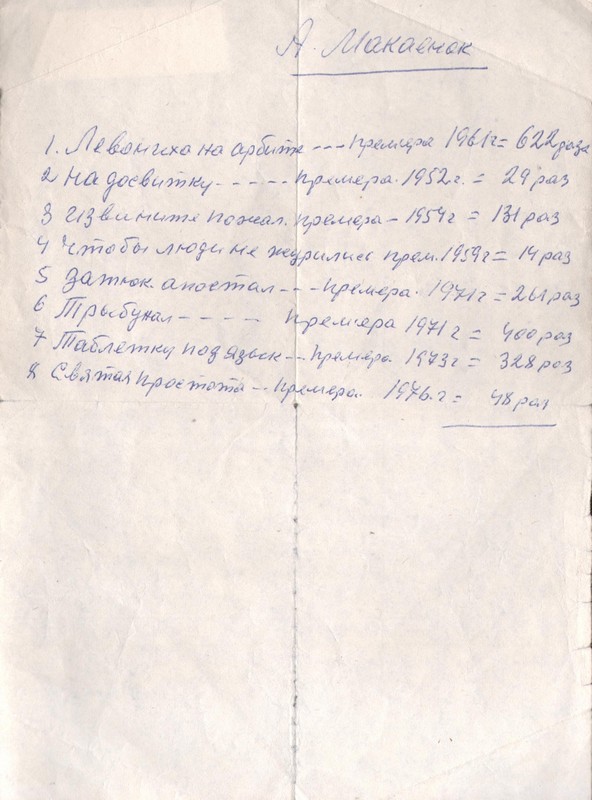 А. Макаенок
1. Левониха на арбите --- премера 1961г = 622 раза
2 На досвитку ----- премера. 1952 г. = 29 раз
3 Извините пожал. премера - 1954г = 131 раз
4 Чтобы люди не журились прем. 1959г = 14 раз
5 Затюк. апостал --- премера. 1971г = 261 раз
6 Трыбунал ---- премера 1971 г = 400 раз
7 Таблетку под язык -- премера. 1973г = 328 раз
8 Святая простота -- премера. 1976. г = 48 раз